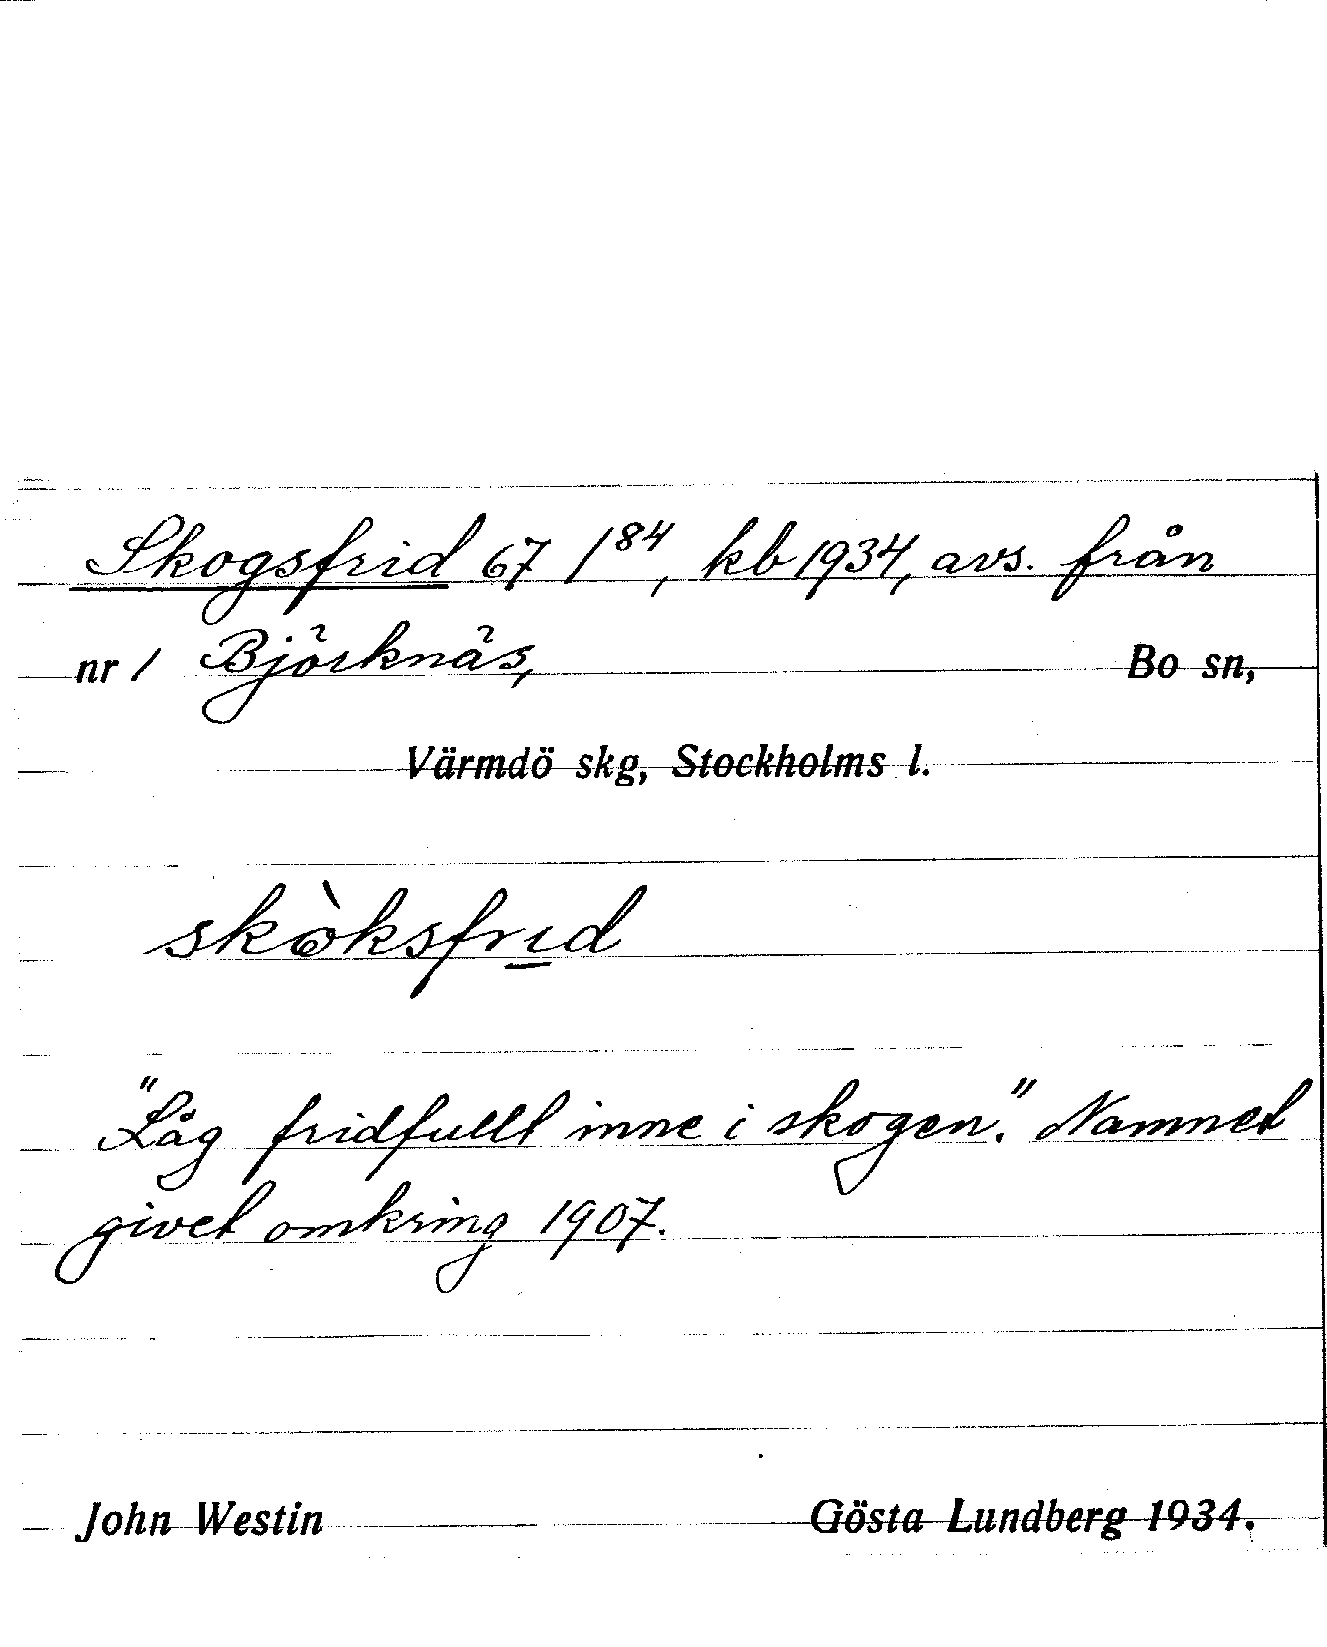 Skogsfrid 67 1⁸⁴, kb 1934, avs. från
nr 1 Björknäs, Bo sn,
Värmdö skg, Stockholms l.
skòksfrid
"Låg fridfullt inne i skogen." Namnet
givet omkring 1907.
John Westin Gösta Lundberg 1934.